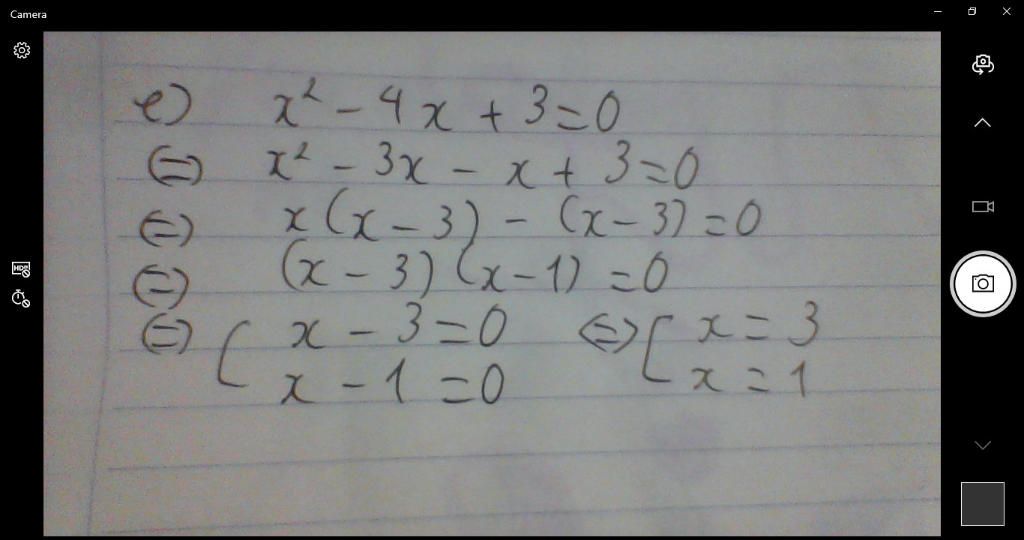 Camera
e) x² - 4x + 3 = 0
(=) x² - 3x - x + 3 = 0
(=) x(x - 3) - (x - 3) = 0
(=) (x - 3)(x - 1) = 0
(=) [ x - 3 = 0 <=> [ x = 3
x - 1 = 0 x = 1
HDR